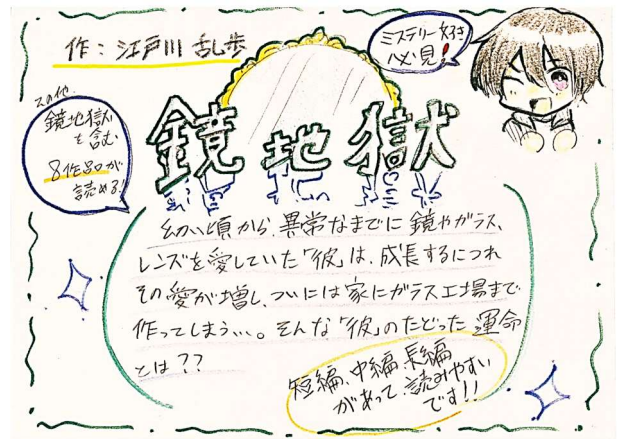 作：江戸川 乱歩
ミステリー好き
必見！
その他
鏡地獄
を含む
8作品が
読める！
鏡地獄
幼い頃から、異常なまでに鏡やガラス、
レンズを愛していた「彼」は、成長するにつれ
その愛が増し、ついには家にガラス工場まで
作ってしまう…。そんな「彼」のたどった運命
とは？？
短編、中編、長編
があって、読みやすい
です！！